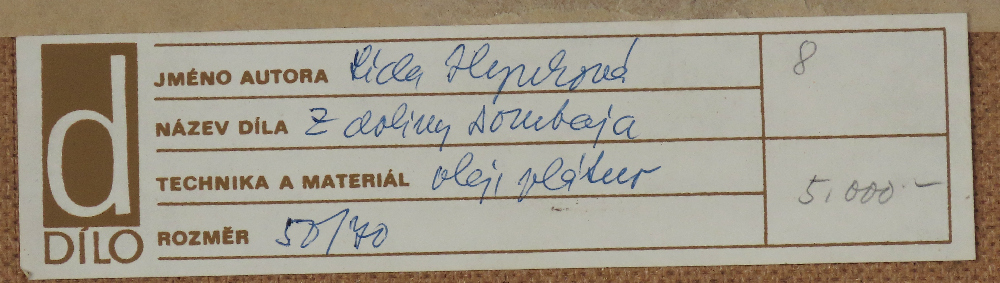 d
DÍLO
JMÉNO AUTORA Lída
8
NÁZEV DÍLA Z doliny Dombaja
TECHNIKA A MATERIÁL olej, plátno
5.000.-
ROZMĚR 50/70